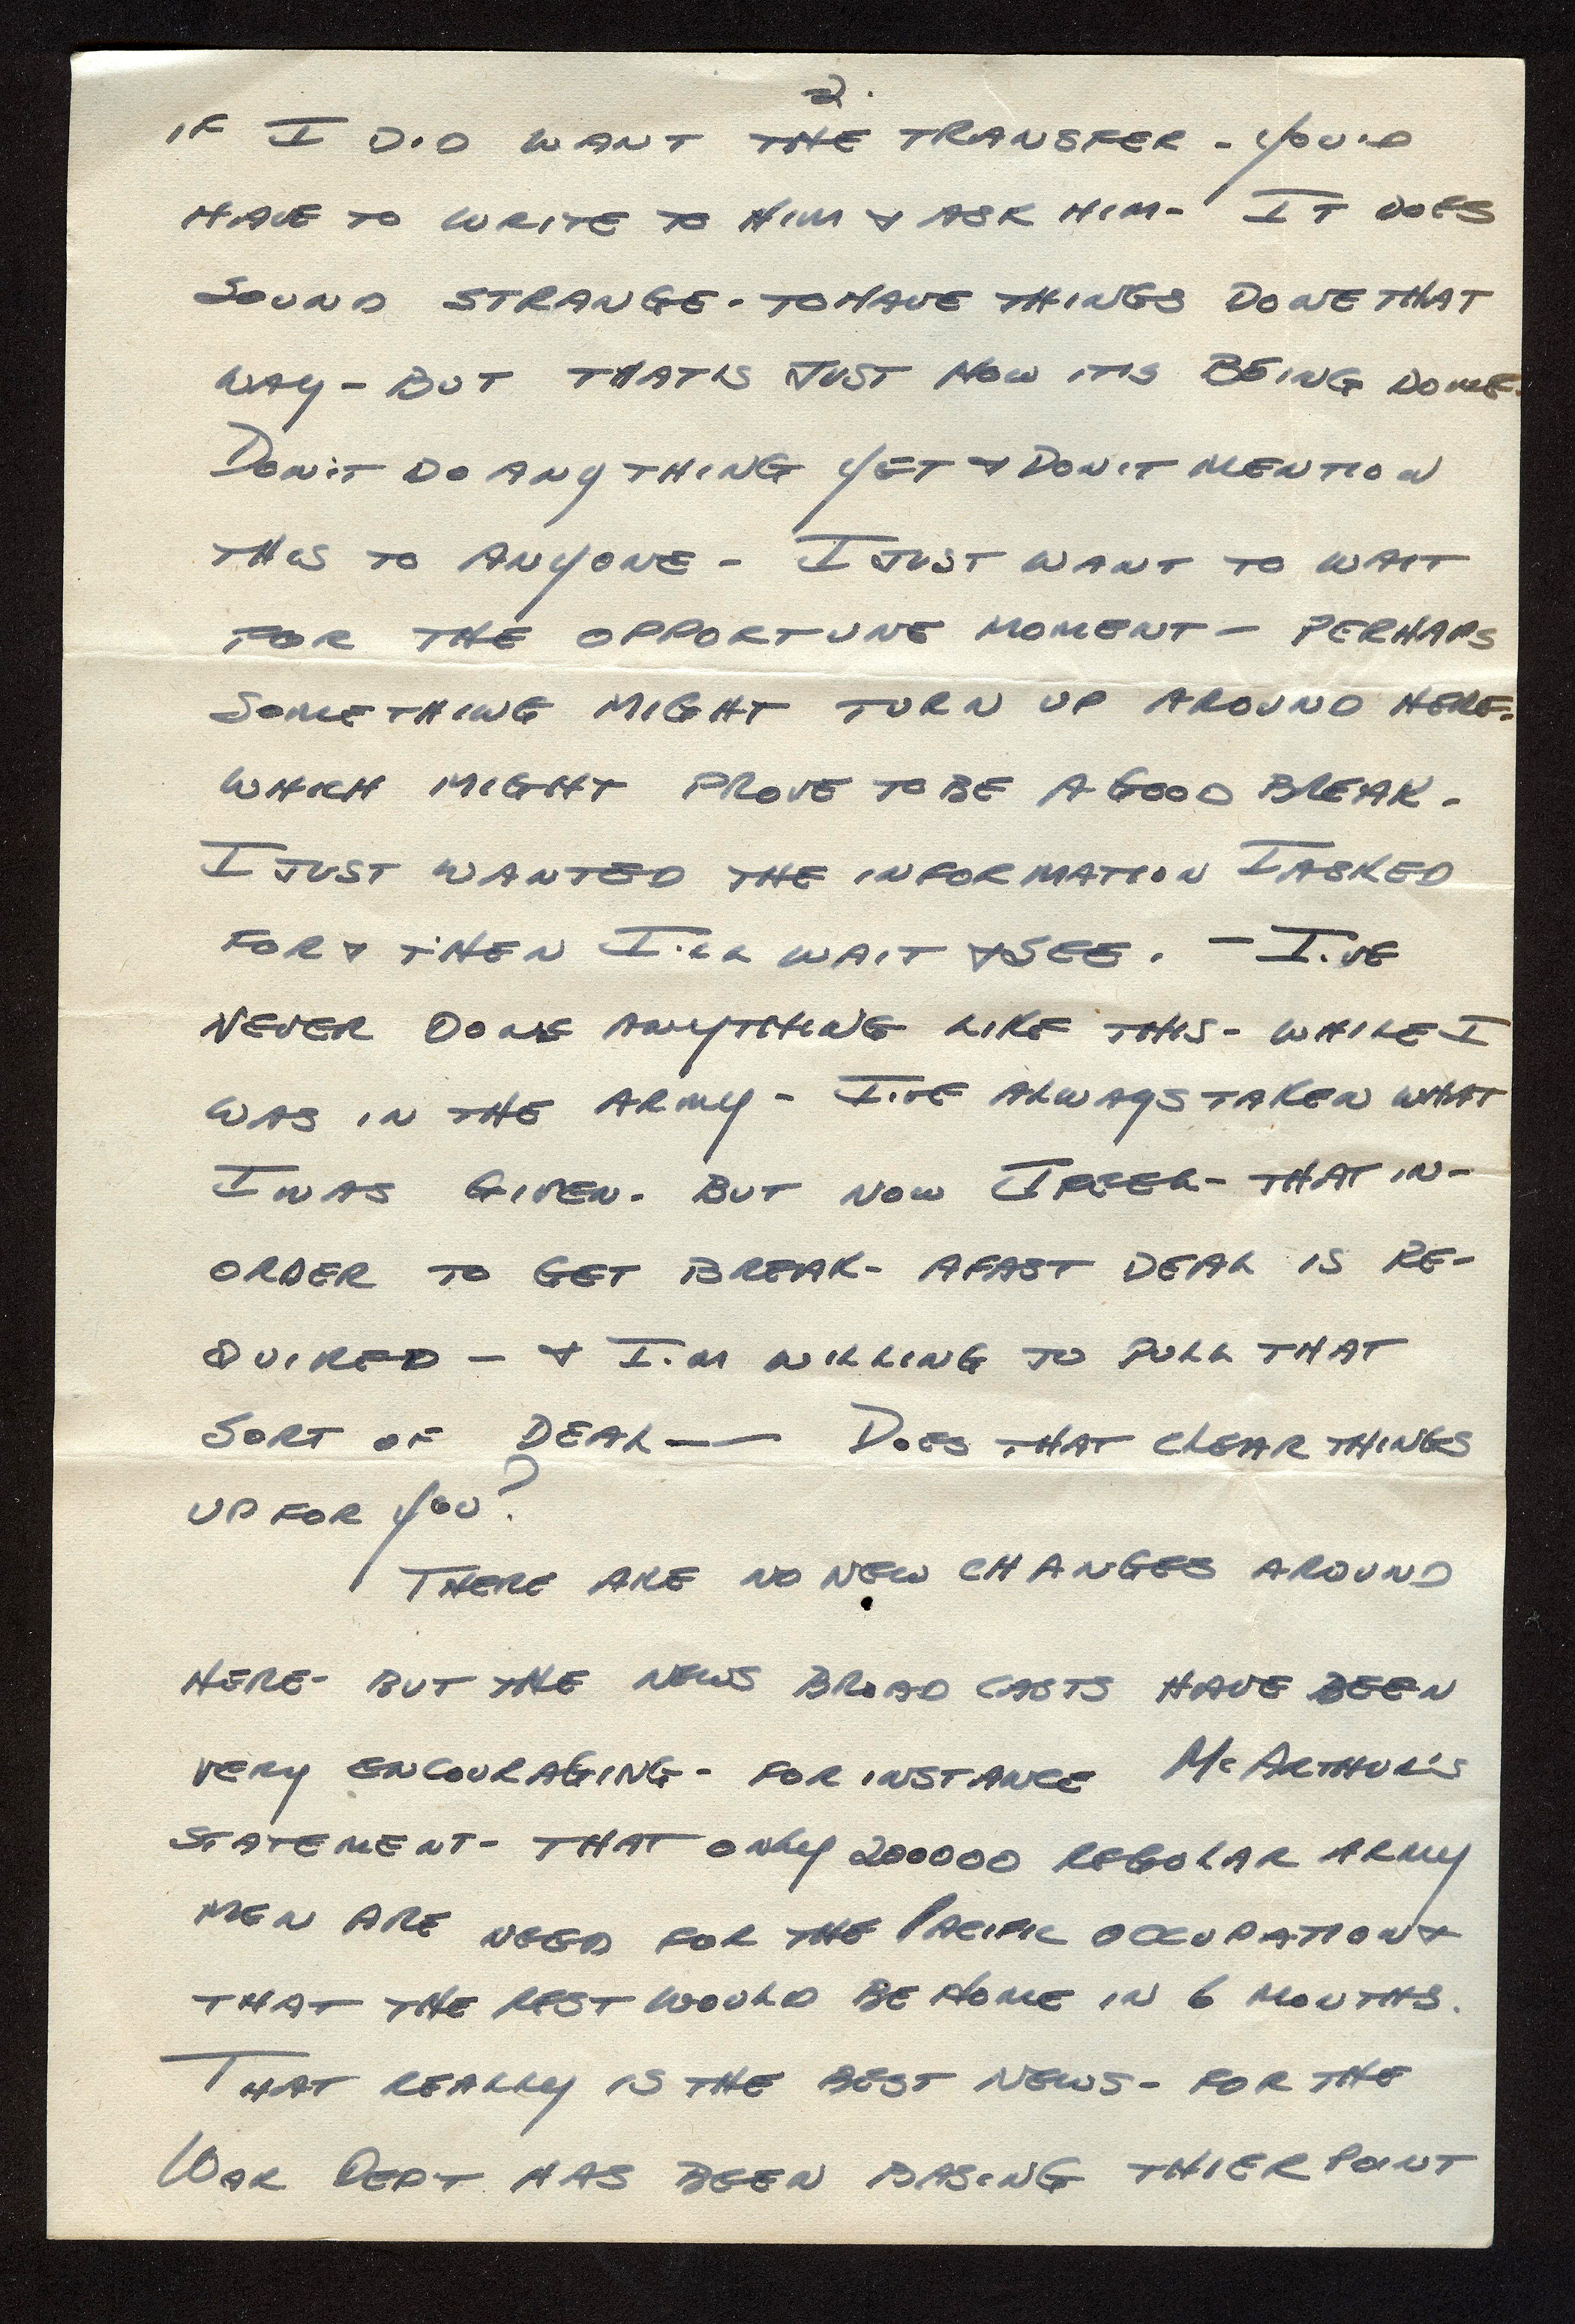 2.
IF I DID WANT THE TRANSFER - YOU'D
HAVE TO WRITE TO HIM & ASK HIM - IT DOES
SOUND STRANGE - TO HAVE THINGS DONE THAT
WAY - BUT THAT'S JUST HOW IT'S BEING DONE.
DON'T DO ANYTHING YET & DON'T MENTION
THIS TO ANYONE - I JUST WANT TO WAIT
FOR THE OPPORTUNE MOMENT - PERHAPS
SOMETHING MIGHT TURN UP AROUND HERE.
WHICH MIGHT PROVE TO BE A GOOD BREAK.
I JUST WANTED THE INFORMATION I ASKED
FOR & THEN I'LL WAIT & SEE. - I'VE
NEVER DONE ANYTHING LIKE THIS - WHILE I
WAS IN THE ARMY - I'VE ALWAYS TAKEN WHAT
I WAS GIVEN. BUT NOW I FEEL - THAT IN-
ORDER TO GET BREAK - A FAST DEAL IS RE-
QUIRED - & I'M WILLING TO PULL THAT
SORT OF DEAL — DOES THAT CLEAR THINGS
UP FOR YOU?
THERE ARE NO NEW CHANGES AROUND
HERE - BUT THE NEWS BROAD CASTS HAVE BEEN
VERY ENCOURAGING - FOR INSTANCE McARTHUR'S
STATEMENT - THAT ONLY 200000 REGULAR ARMY
MEN ARE NEED FOR THE PACIFIC OCCUPATION &
THAT THE REST WOULD BE HOME IN 6 MONTHS.
THAT REALLY IS THE BEST NEWS - FOR THE
WAR DEPT HAS BEEN BASING THIER POINT